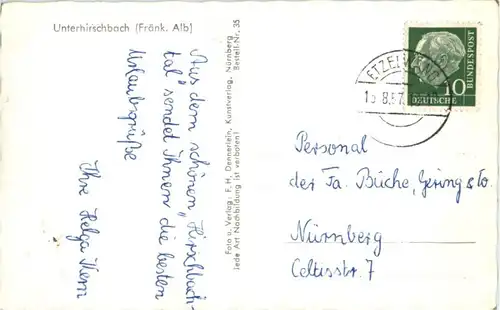 Unterhirschbach (Fränk. Alb)
Aus dem schönen „Hirschbach-
tal" sendet Ihnen die besten
Urlaubsgrüße
Ihre Helga Kern
Foto u. Verlag: F. H. Dennerlein, Kunstverlag, Nürnberg
Jede Art Nachbildung ist verboten! Bestell-Nr. 35
ETZELWANG
8.57
10
DEUTSCHE
BUNDESPOST
Personal
der Fa. Büche, Gering & Co.
Nürnberg
Celtisstr. 7